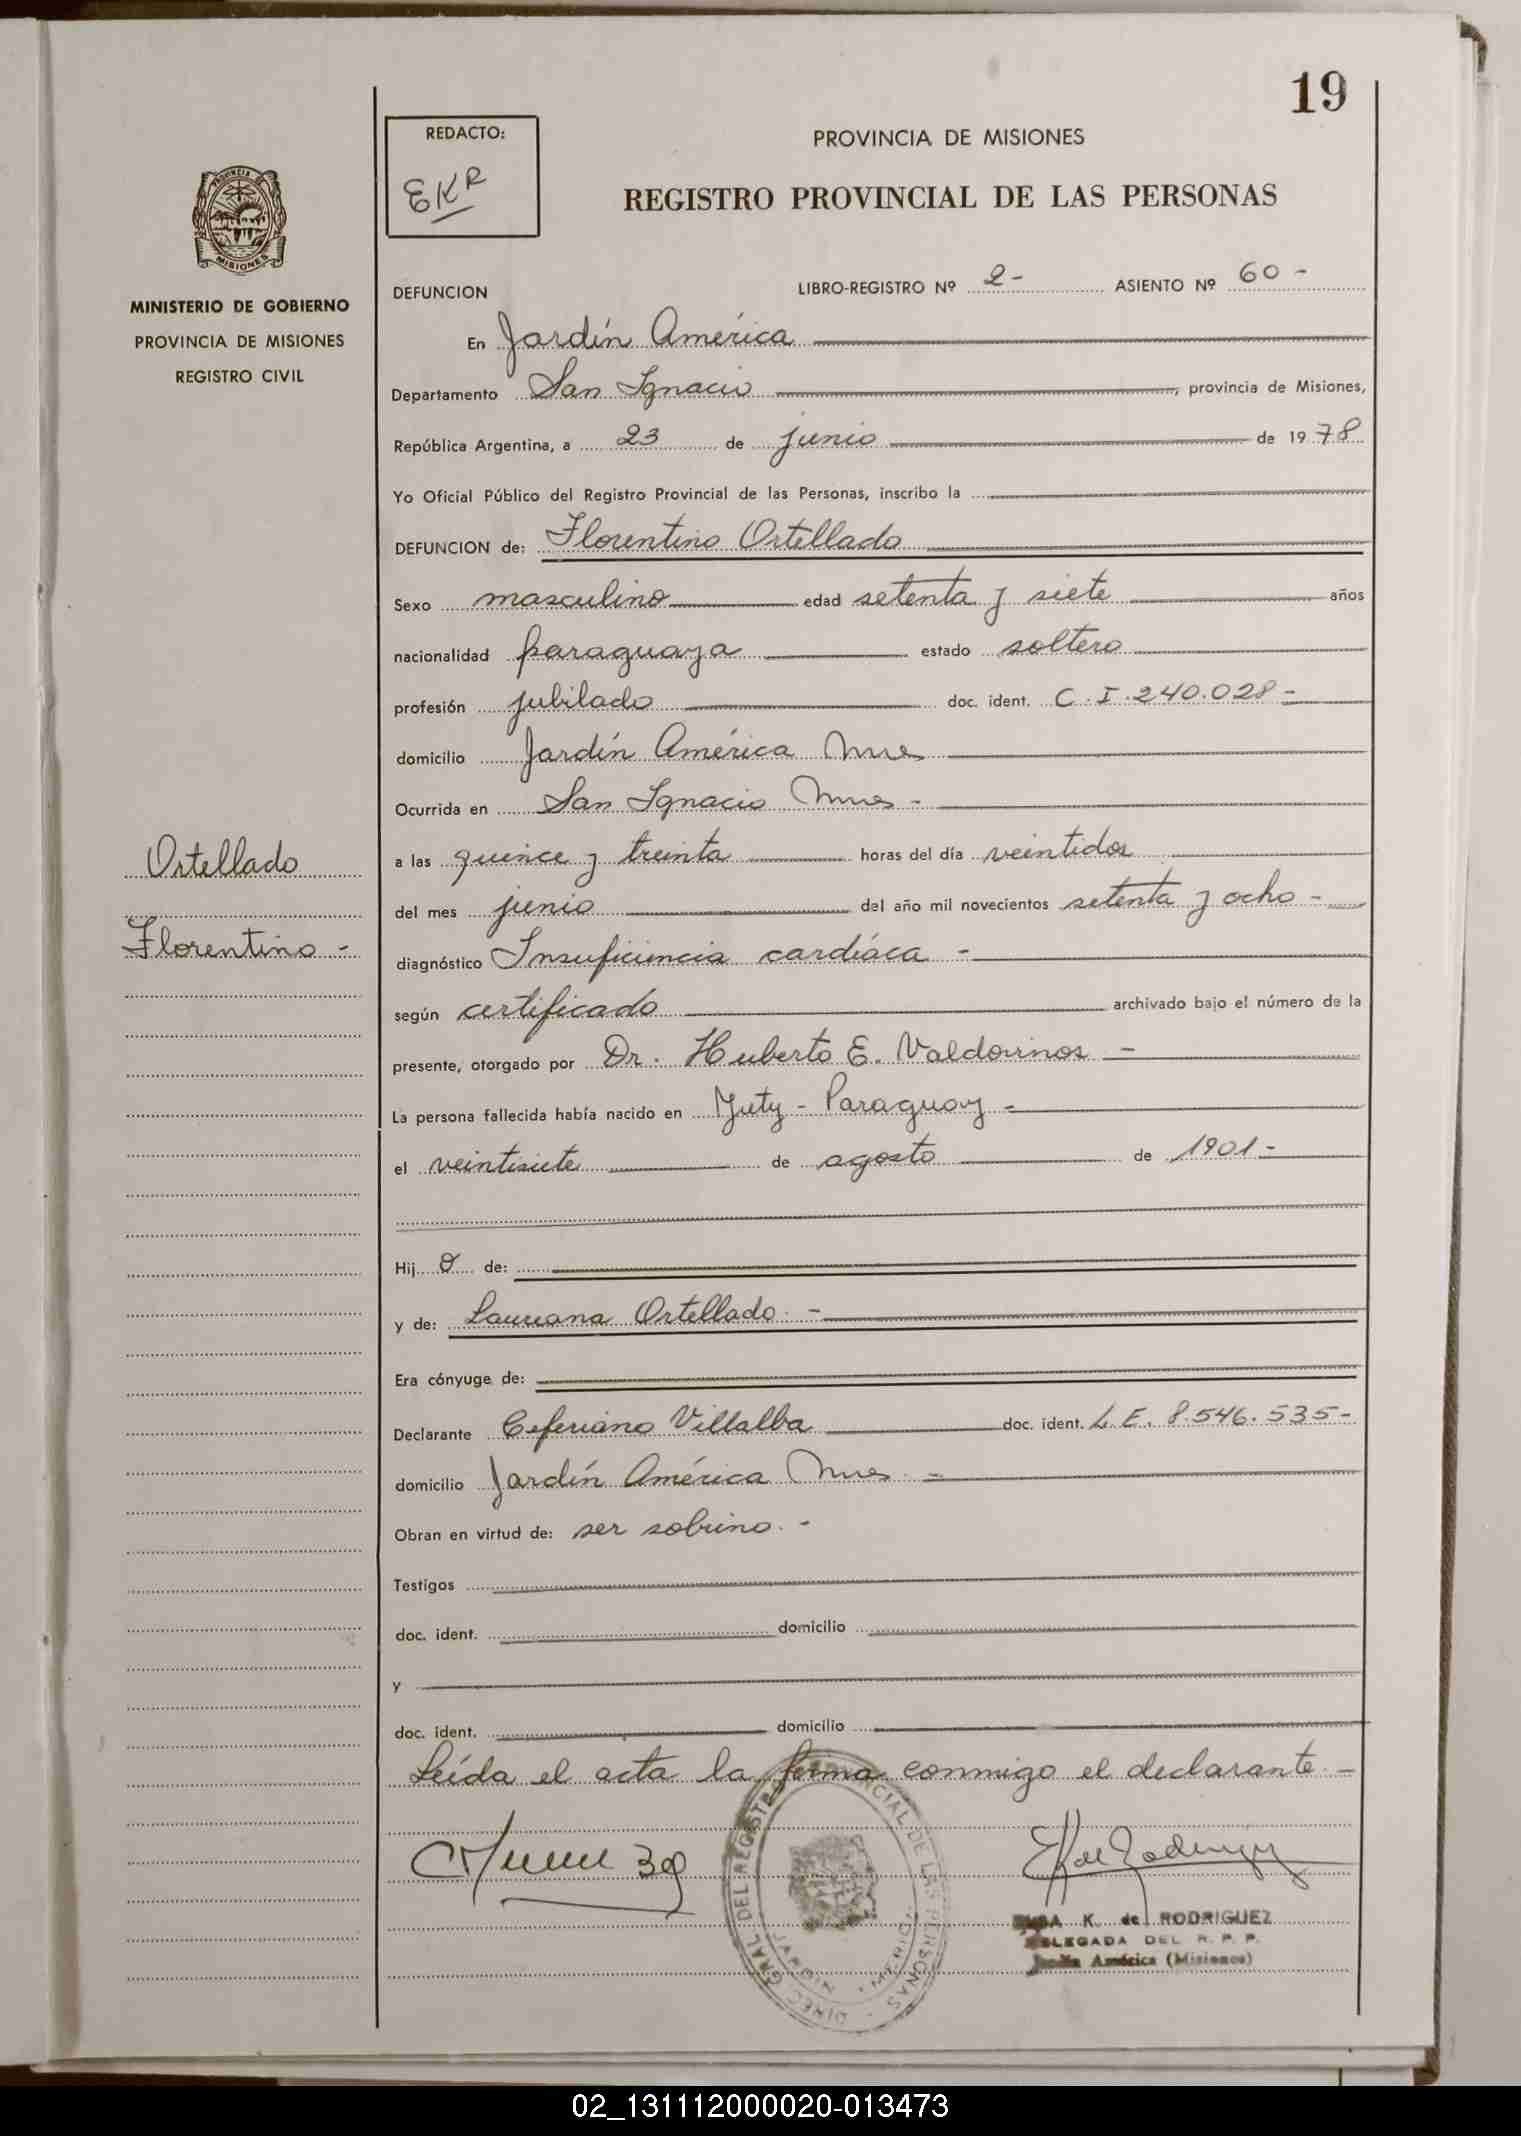 19
REDACTO:
EKR
PROVINCIA DE MISIONES
REGISTRO PROVINCIAL DE LAS PERSONAS
MISIONES
MINISTERIO DE GOBIERNO
PROVINCIA DE MISIONES
REGISTRO CIVIL
DEFUNCION LIBRO-REGISTRO Nº 2- ASIENTO Nº 60-
En Jardín América
Departamento San Ignacio, provincia de Misiones,
República Argentina, a 23 de junio de 1978
Yo Oficial Público del Registro Provincial de las Personas, inscribo la
DEFUNCION de: Florentino Ortellado
Sexo masculino edad setenta y siete años
nacionalidad paraguaya estado soltero
profesión jubilado doc. ident. C.I.240.028-
domicilio Jardín América Mnes
Ocurrida en San Ignacio Mnes-
a las quince y treinta horas del día veintidos
del mes junio del año mil novecientos setenta y ocho-
diagnóstico Insuficiencia cardíaca-
según certificado archivado bajo el número de la
presente, otorgado por Dr. Huberto E. Valdovinos-
La persona fallecida había nacido en Yuty-Paraguay-
el veintisiete de agosto de 1901-
Hijo de:
y de: Laureana Ortellado.-
Era cónyuge de:
Declarante Ceferiano Villalba doc. ident. L.E. 8.546.535-
domicilio Jardín América Mnes.-
Obran en virtud de: ser sobrino.-
Testigos
doc. ident. domicilio
y
doc. ident. domicilio
Leída el acta la firma conmigo el declarante.-
Ortellado
Florentino-
DIREC. GRAL DEL REGISTRO PROVINCIAL DE LAS PERSONAS
JARDIN AMERICA
K. de RODRIGUEZ
DELEGADA DEL R. P. P.
Jardín América (Misiones)
02_131112000020-013473